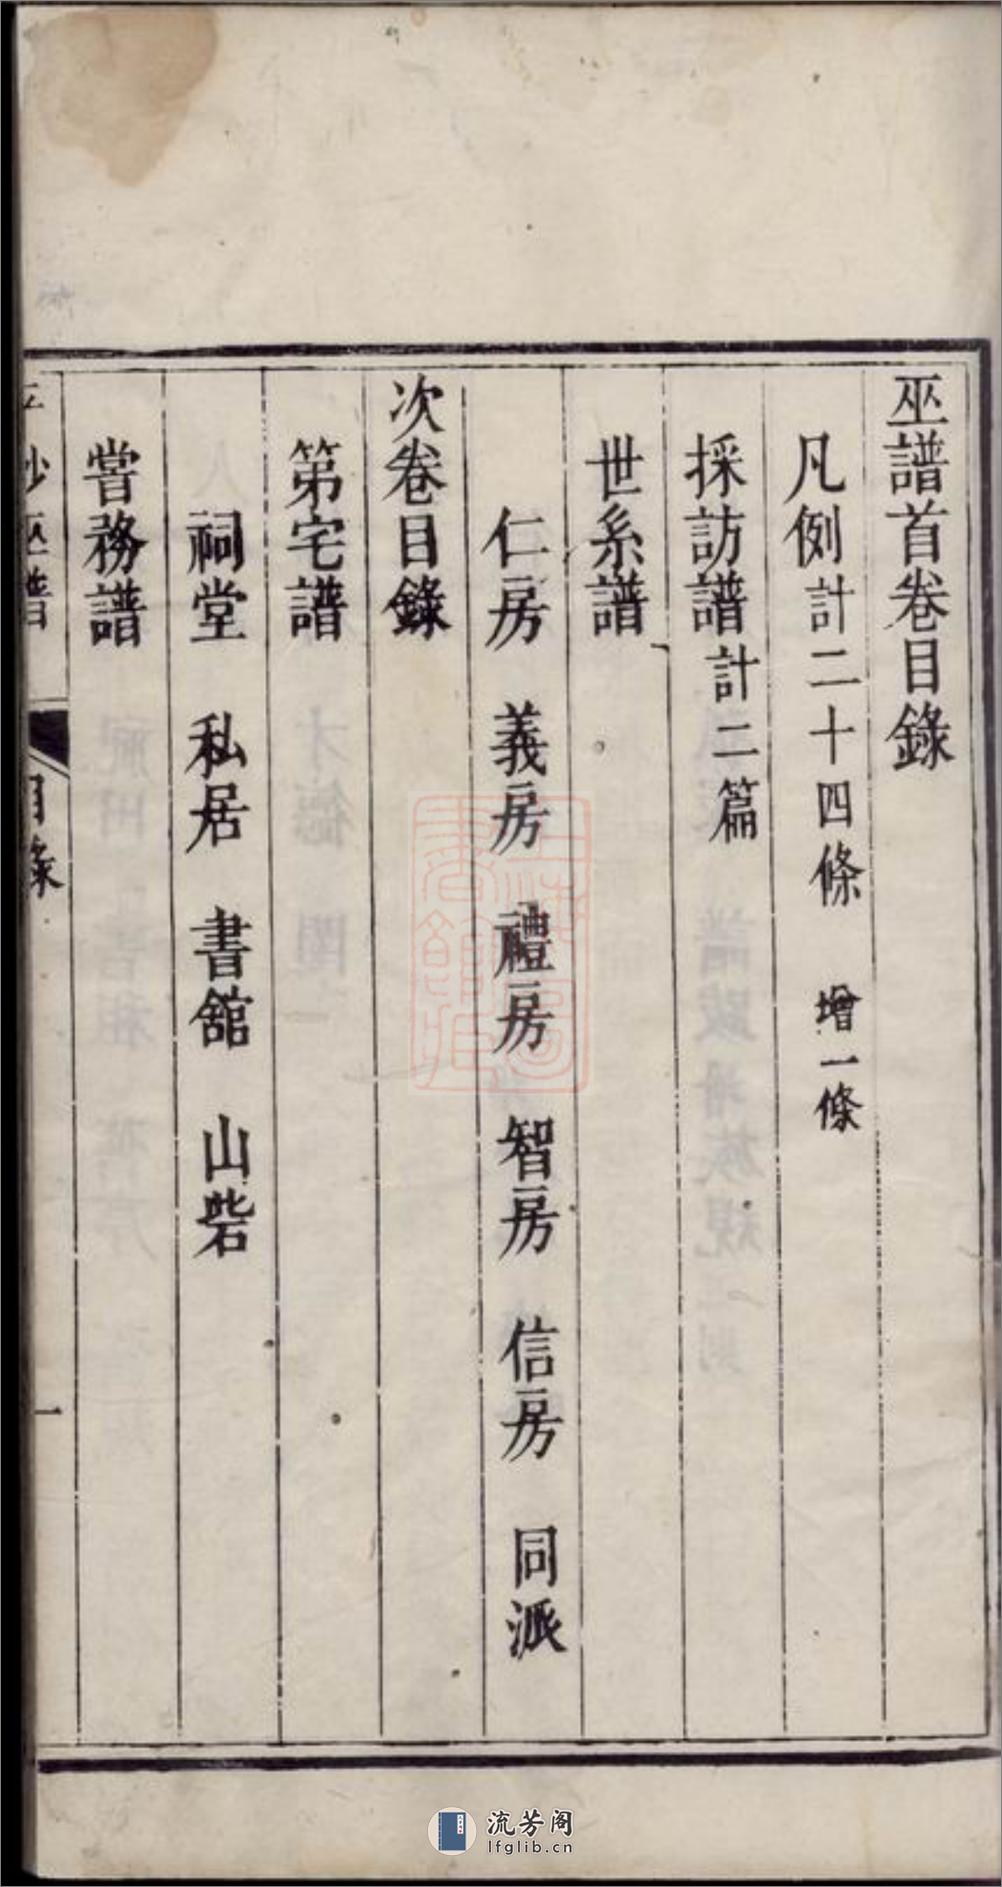 巫譜首卷目錄
凡例計二十四條 增一條
採訪譜計二篇
世系譜
仁房 義房 禮房 智房 信房 同派
次卷目錄
第宅譜
祠堂 私居 書舘 山砦
嘗務譜
巫譜
目錄
一
流芳阁
lfglib.cn